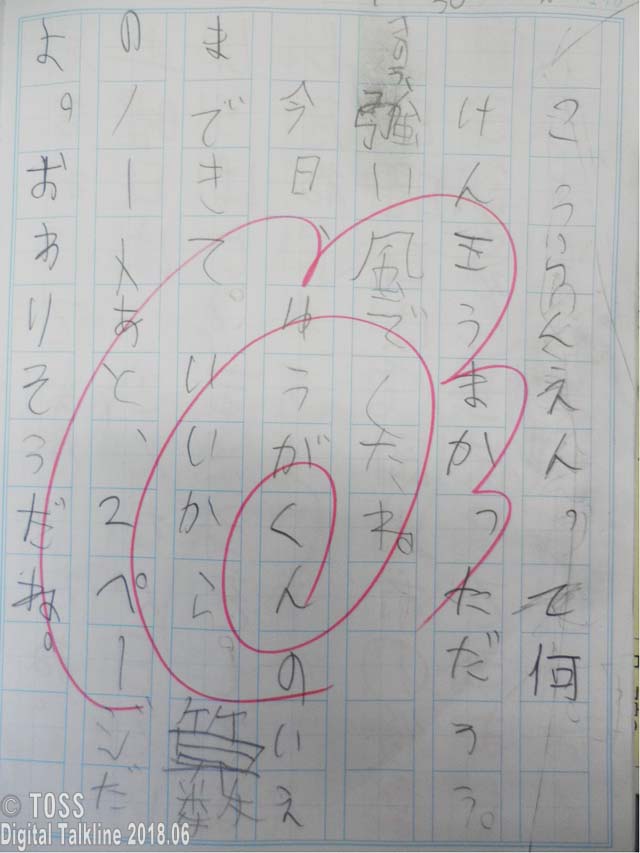 こうえんって何
けん玉うまかっただろう。
強い風でしたね。
今日、ゆうがくんのいえ
まできて。いいから。
のノートあと、2ページだ
よ。おありそうだね。
© TOSS
Digital Talkline 2018.06